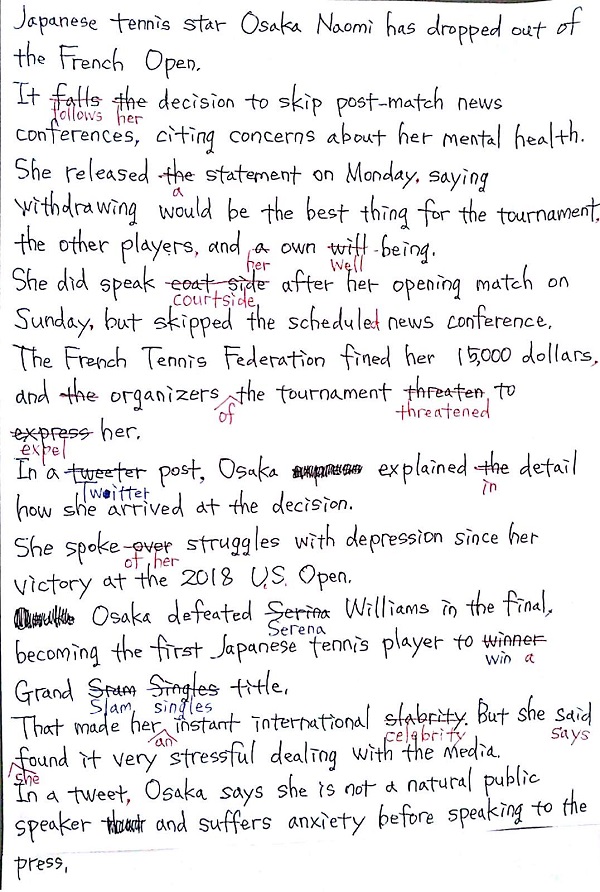 Japanese tennis star Osaka Naomi has dropped out of
the French Open.
It falls the decision to skip post-match news
follows her
conferences, citing concerns about her mental health.
She released the statement on Monday, saying
a
withdrawing would be the best thing for the tournament,
the other players, and a own will-being.
her well
She did speak coat side after her opening match on
courtside
Sunday, but skipped the scheduled news conference.
The French Tennis Federation fined her 15,000 dollars,
and the organizers the tournament threaten to
of threatened
express her.
expel
In a tweeter post, Osaka explained the detail
Twitter in
how she arrived at the decision.
She spoke over struggles with depression since her
of her
victory at the 2018 U.S. Open.
Osaka defeated Serina Williams in the final,
Serena
becoming the first Japanese tennis player to winner
win a
Grand Sram Singles title.
Slam, singles
That made her instant international slabrity. But she said
an celebrity says
found it very stressful dealing with the media.
she
In a tweet, Osaka says she is not a natural public
speaker and suffers anxiety before speaking to the
press.